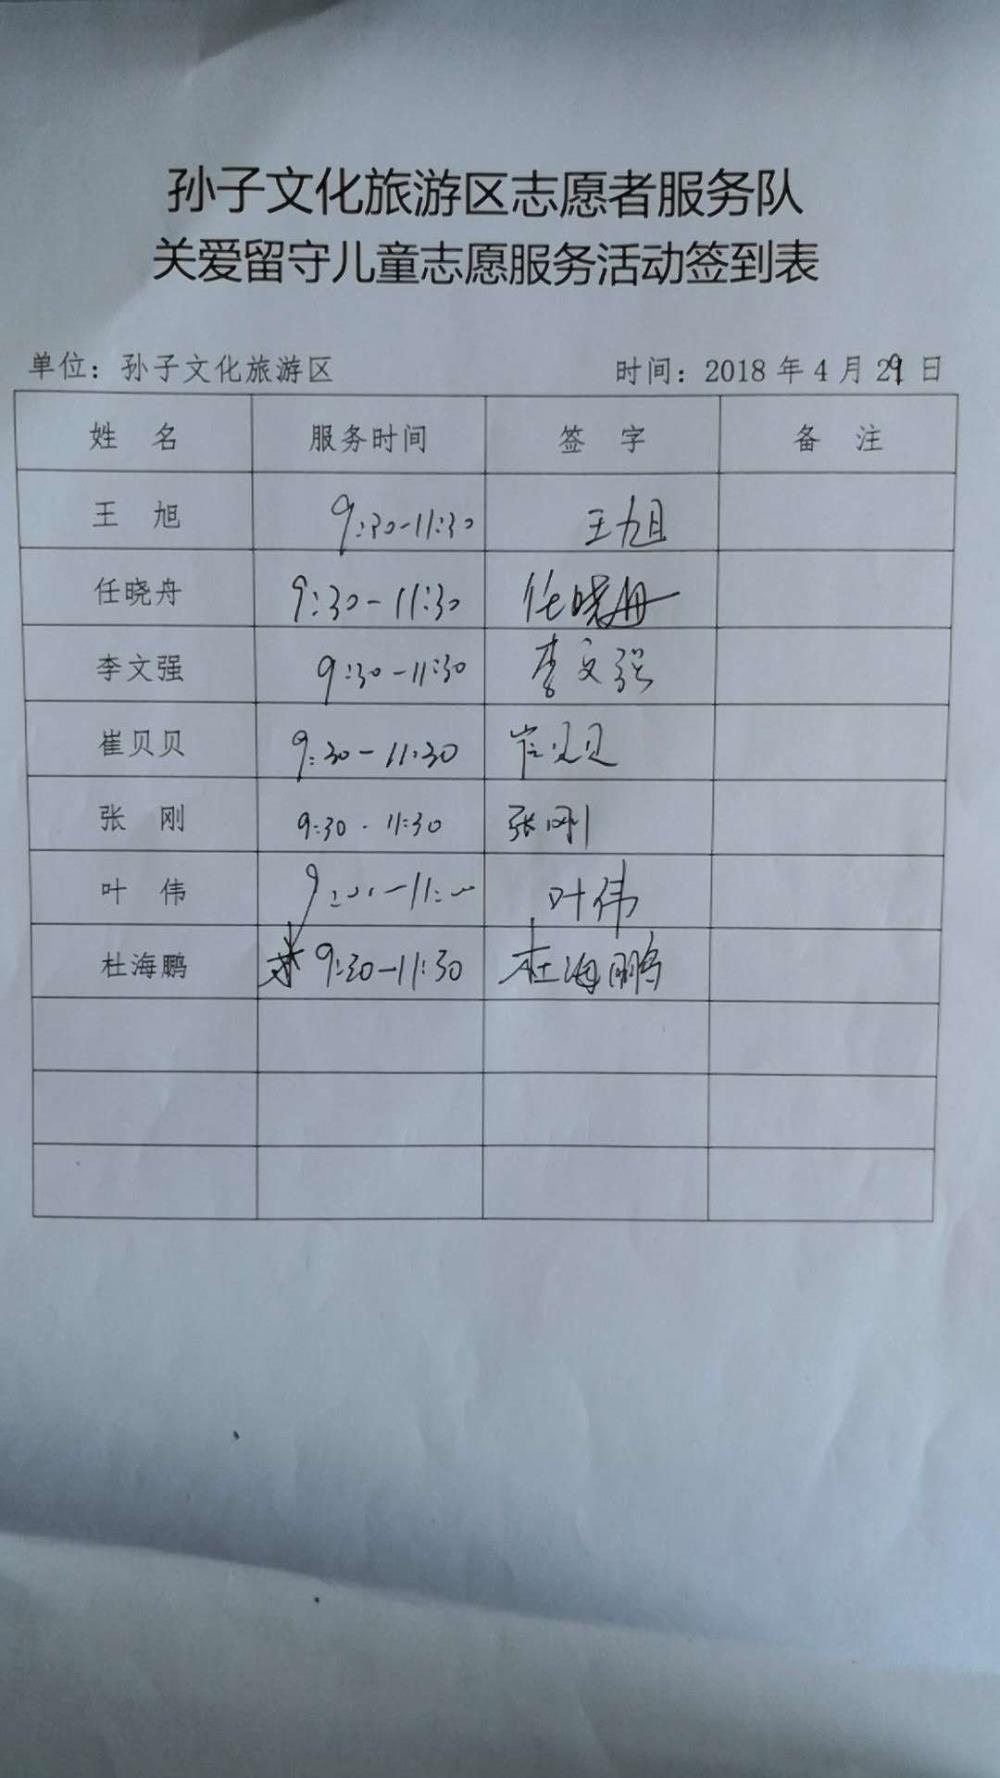 孙子文化旅游区志愿者服务队
关爱留守儿童志愿服务活动签到表
单位：孙子文化旅游区 时间：2018 年 4 月 29 日
姓 名 服务时间 签 字 备 注
王 旭 9:30-11:30 王旭
任晓舟 9:30-11:30 任晓舟
李文强 9:30-11:30 李文强
崔贝贝 9:30-11:30 崔贝贝
张 刚 9:30-11:30 张刚
叶 伟 叶伟
杜海鹏 9:30-11:30 杜海鹏